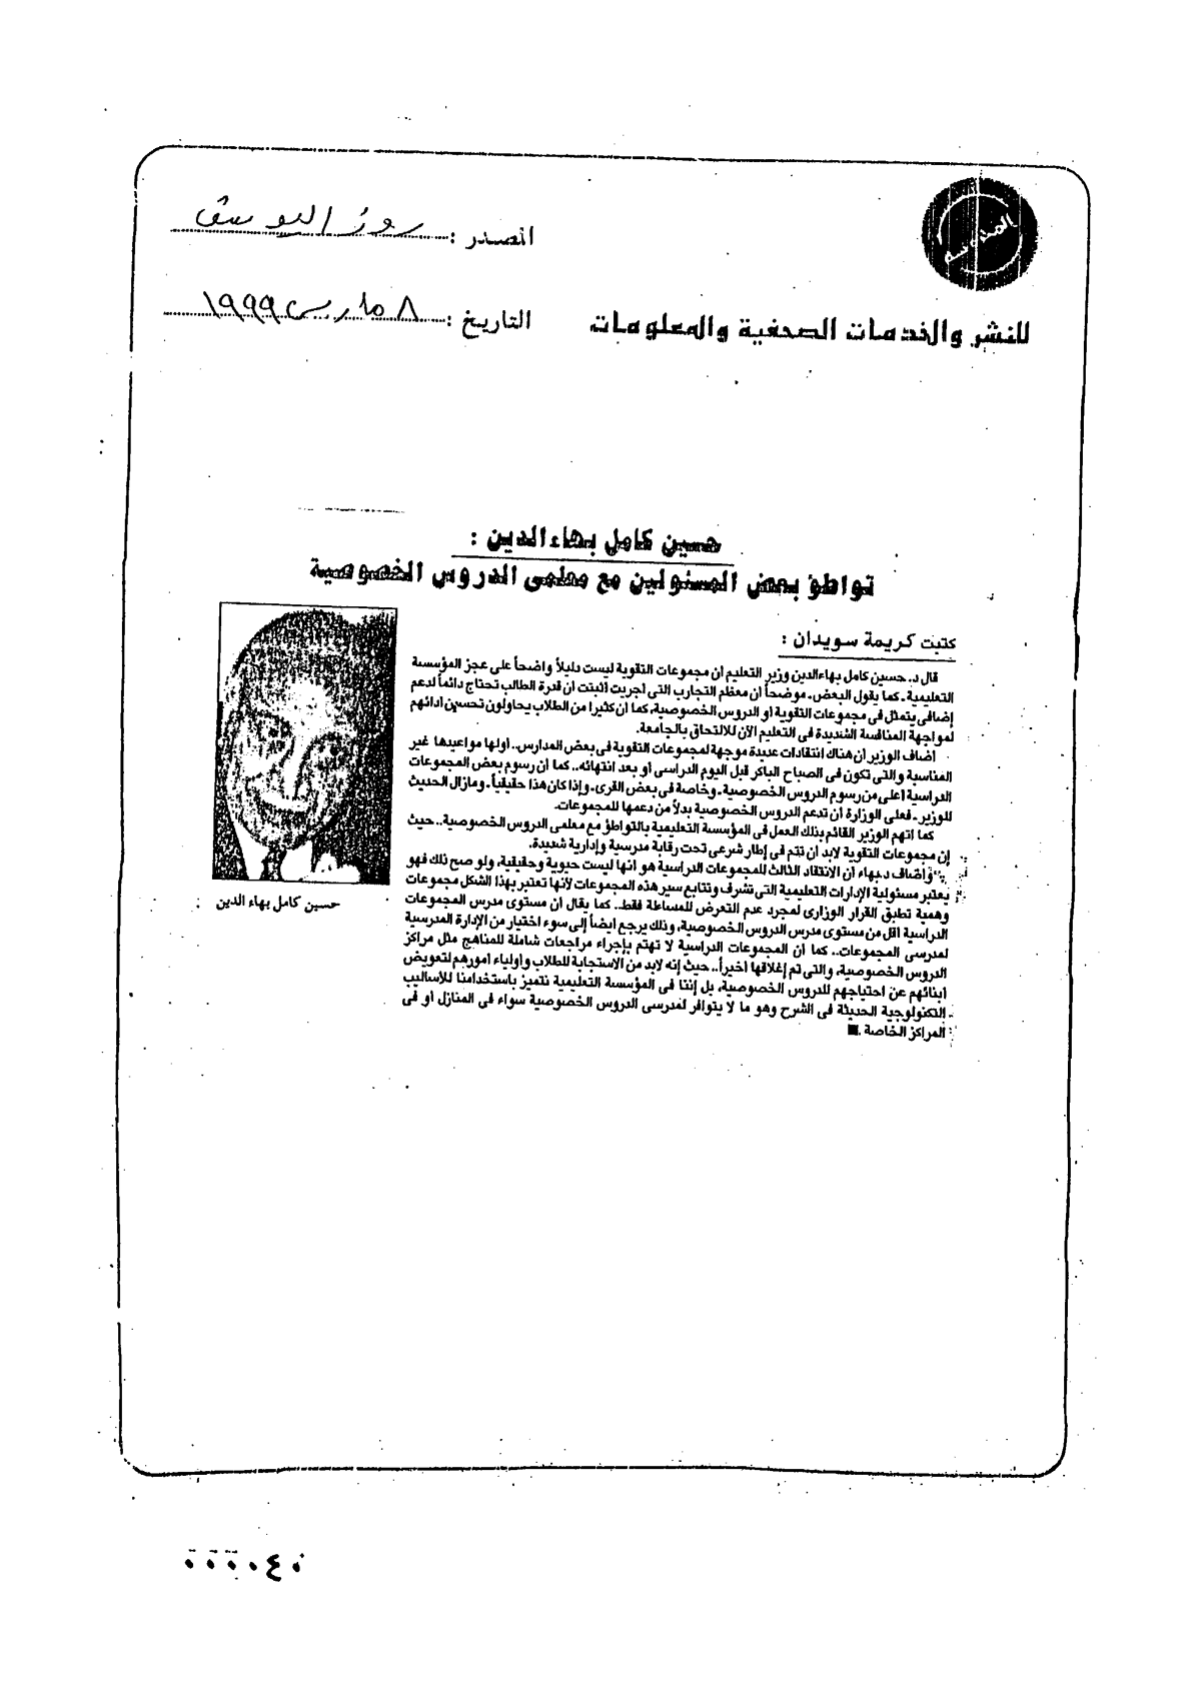 المصدر : روز اليوسف
التاريخ : ٨ مارس ١٩٩٩
للنشر والخدمات الصحفية والمعلومات
حسين كامل بهاء الدين :
تواطؤ بعض المسئولين مع معلمى الدروس الخصوصية
كتبت كريمة سويدان :
قال د. حسين كامل بهاء الدين وزير التعليم أن مجموعات التقوية ليست دليلاً واضحاً على عجز المؤسسة
التعليمية ـ كما يقول البعض ـ موضحاً أن معظم التجارب التى أجريت أثبتت أن قدرة الطالب تحتاج دائماً لدعم
إضافى يتمثل فى مجموعات التقوية أو الدروس الخصوصية، كما أن كثيرا من الطلاب يحاولون تحسين أدائهم
لمواجهة المنافسة الشديدة فى التعليم الآن للالتحاق بالجامعة.
أضاف الوزير أن هناك انتقادات عديدة موجهة لمجموعات التقوية فى بعض المدارس.. أولها مواعيدها غير
المناسبة والتى تكون فى الصباح الباكر قبل اليوم الدراسى أو بعد انتهائه.. كما أن رسوم بعض المجموعات
الدراسية أعلى من رسوم الدروس الخصوصية ـ وخاصة فى بعض القرى ـ وإذا كان هذا حقيقياً ـ ومازال الحديث
للوزير ـ فعلى الوزارة أن تدعم الدروس الخصوصية بدلاً من دعمها للمجموعات.
كما اتهم الوزير القائم بذلك العمل فى المؤسسة التعليمية بالتواطؤ مع معلمى الدروس الخصوصية.. حيث
إن مجموعات التقوية لابد أن تتم فى إطار شرعى تحت رقابة مدرسية وإدارية شديدة.
وأضاف د. بهاء أن الانتقاد الثالث للمجموعات الدراسية هو أنها ليست حيوية وحقيقية، ولو صح ذلك فهو
يعتبر مسئولية الإدارات التعليمية التى تشرف وتتابع سير هذه المجموعات لأنها تعتبر بهذا الشكل مجموعات
وهمية تطبق القرار الوزارى لمجرد عدم التعرض للمساءلة فقط.. كما يقال أن مستوى مدرس المجموعات
الدراسية أقل من مستوى مدرس الدروس الخصوصية، وذلك يرجع أيضاً إلى سوء اختيار من الإدارة المدرسية
لمدرسى المجموعات.. كما أن المجموعات الدراسية لا تهتم بإجراء مراجعات شاملة للمناهج مثل مراكز
الدروس الخصوصية، والتى تم إغلاقها أخيراً.. حيث إنه لابد من الاستجابة للطلاب وأولياء أمورهم لتعويض
أبنائهم عن احتياجهم للدروس الخصوصية، بل إننا فى المؤسسة التعليمية نتميز باستخدامنا للأساليب
التكنولوجية الحديثة فى الشرح وهو ما لا يتوافر لمدرسى الدروس الخصوصية سواء فى المنازل أو فى
المراكز الخاصة. ■
حسين كامل بهاء الدين
٠٠٠٠٤٠